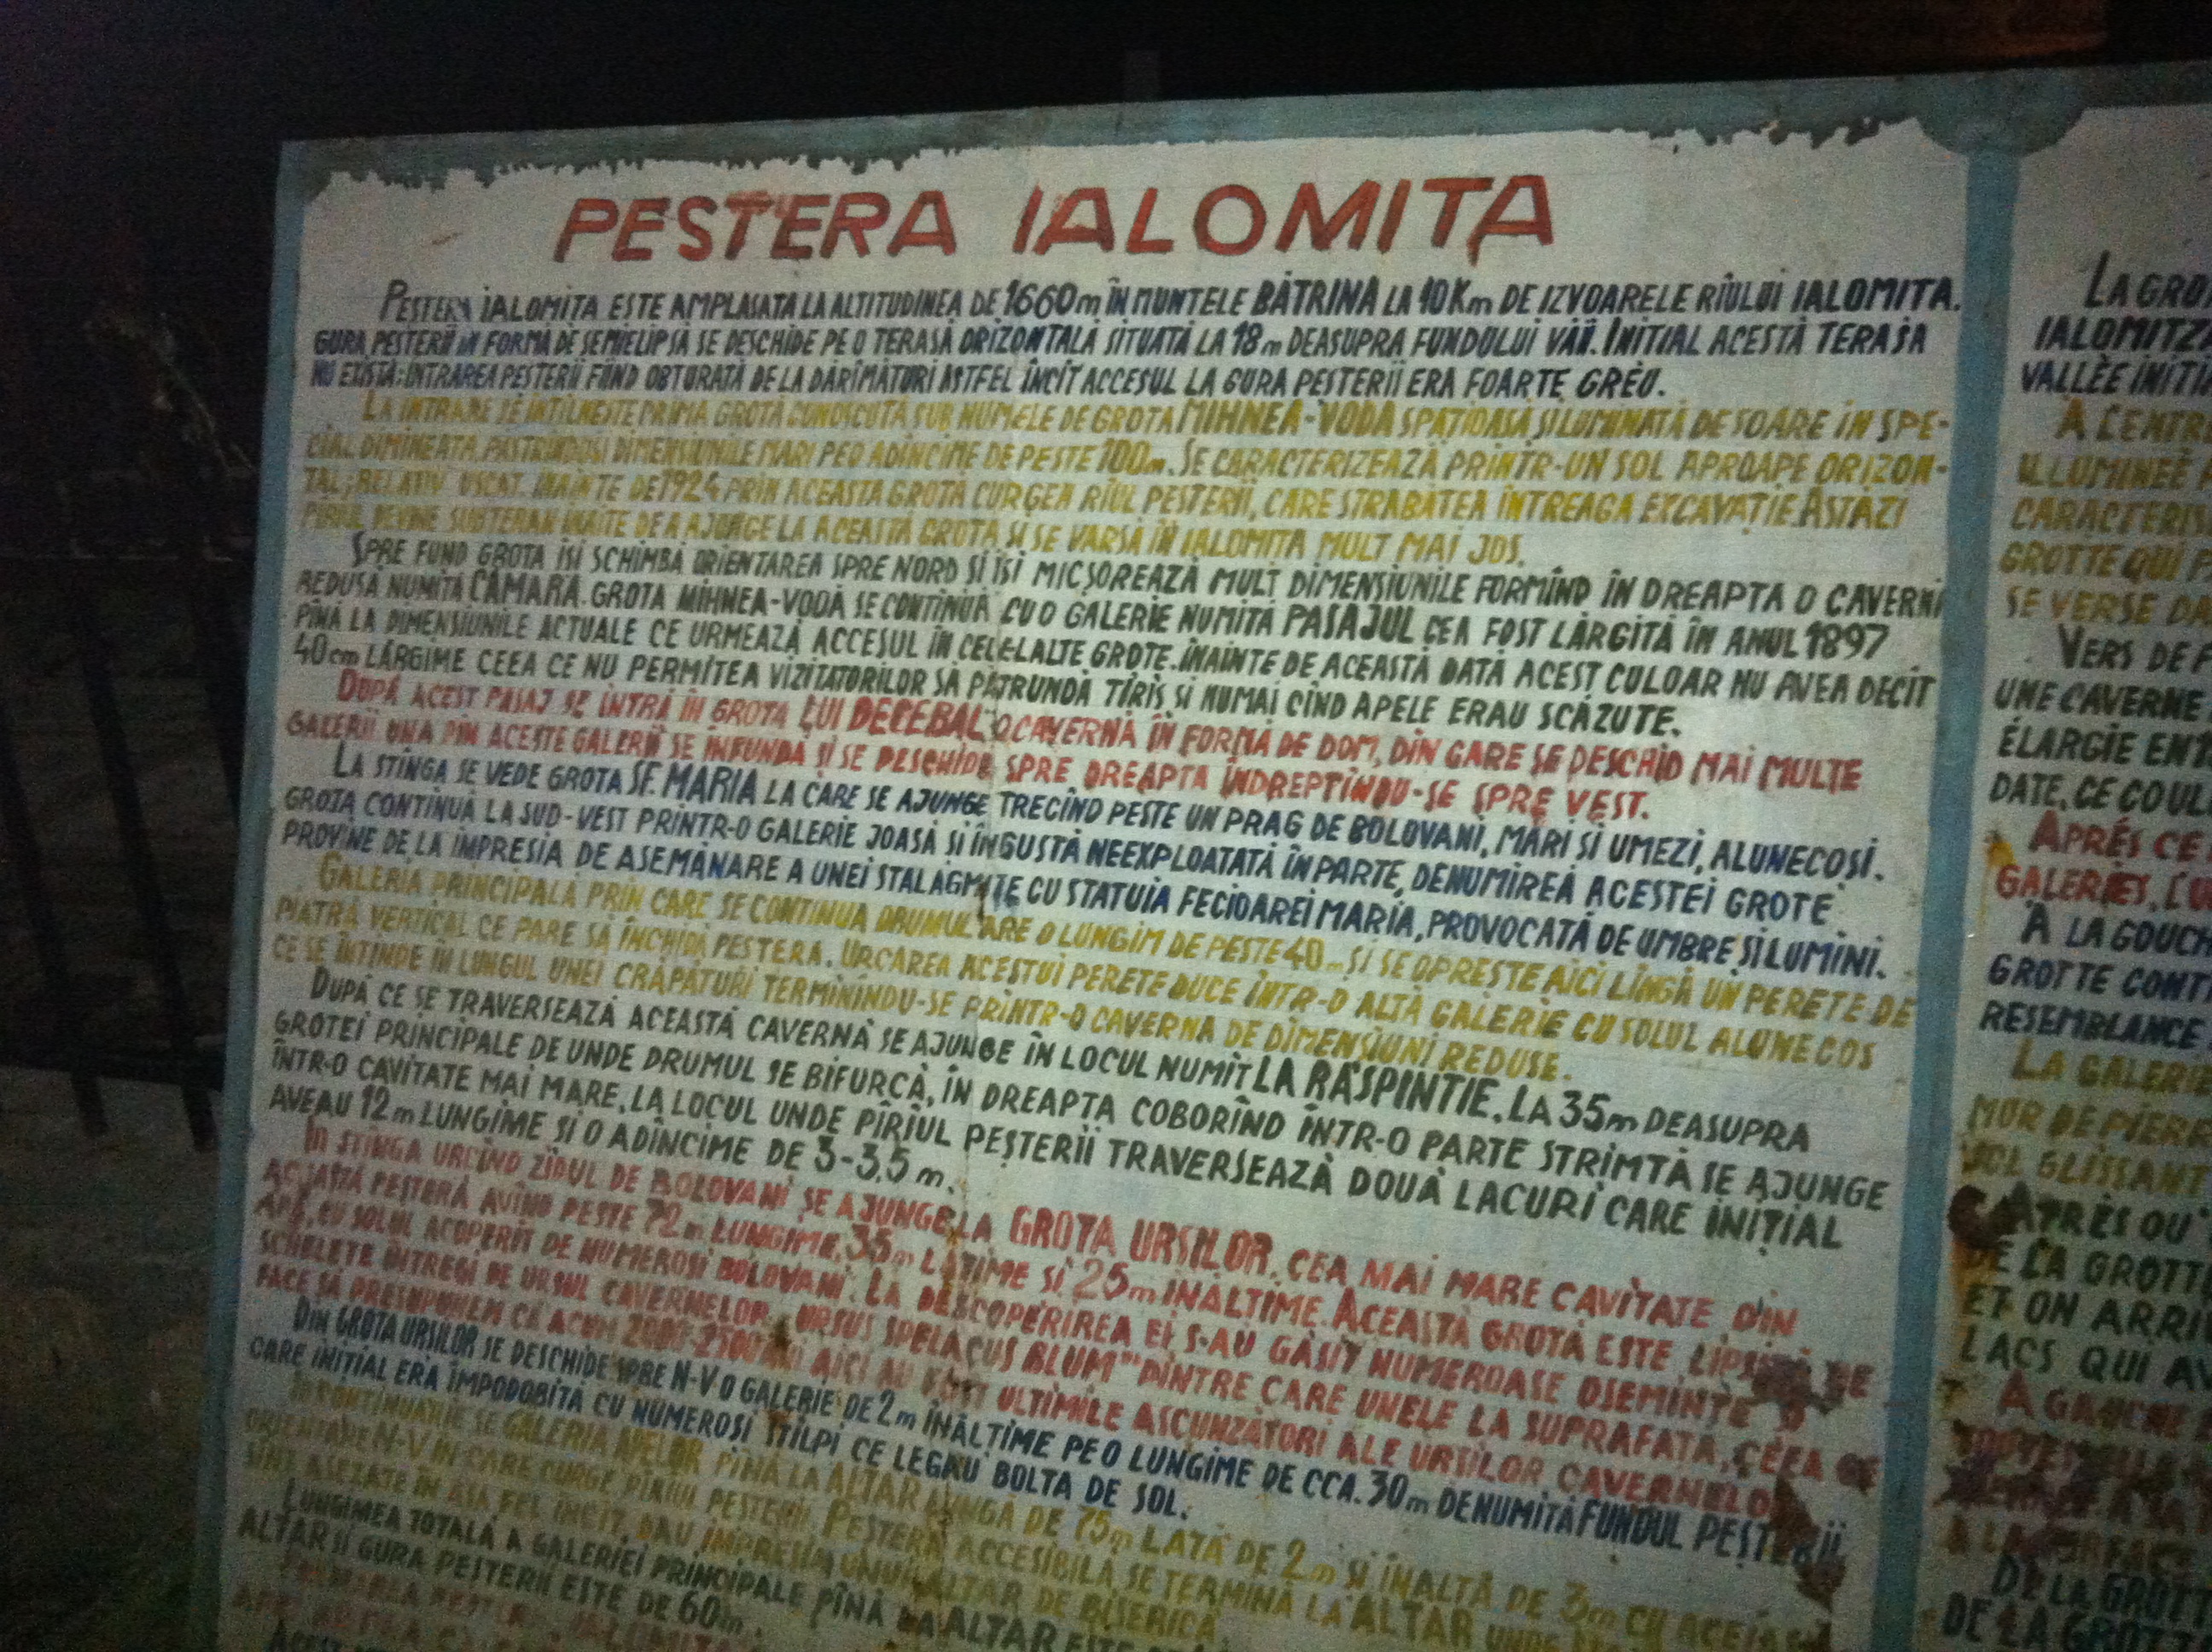 PESTERA IALOMITA
PESTERA IALOMITA ESTE AMPLASATA LA ALTITUDINEA DE 1660m ÎN MUNTELE BĂTRINA LA 10Km DE IZVOARELE RÎULUI IALOMITA.
GURA PESTERII ÎN FORMĂ DE SEMIELIPSĂ SE DESCHIDE PE O TERASĂ ORIZONTALĂ SITUATĂ LA 18m DEASUPRA FUNDULUI VĂII. INITIAL ACESTĂ TERASA
NU EXISTA; INTRAREA PESTERII FIIND OBTURATĂ DE LA DĂRÎMĂTURI ASTFEL ÎNCÎT ACCESUL LA GURA PESTERII ERA FOARTE GREU.
LA INTRARE SE INTILNESTE PRIMA GROTĂ CUNOSCUTĂ SUB NUMELE DE GROTA MIHNEA-VODĂ SPATIOASĂ SI LUMINATĂ DE SOARE ÎN SPE-
CIAL DIMINEATA, PASTRINDUSI DIMENSIUNILE MARI PE O ADINCIME DE PESTE 100m. SE CARACTERIZEAZĂ PRINTR-UN SOL APROAPE ORIZON-
TAL; RELATIV USCAT. INAINTE DE 1924 PRIN ACEASTA GROTĂ CURGEA RÎUL PESTERII, CARE STRABĂTEA ÎNTREAGA EXCAVAȚIE. ASTĂZI
PIRIUL DEVINE SUBTERAN INAITE DE A AJUNGE LA ACEASTĂ GROTĂ SI SE VARSĂ ÎN IALOMITA MULT MAI JOS.
SPRE FUND GROTA ISI SCHIMBĂ ORIENTAREA SPRE NORD SI ÎSI MICȘOREAZĂ MULT DIMENSIUNILE FORMÎND ÎN DREAPTA O CAVERNĂ
REDUSĂ NUMITĂ CĂMARA. GROTA MIHNEA-VODĂ SE CONTINUĂ CU O GALERIE NUMITĂ PASAJUL CEA FOST LĂRGITĂ ÎN ANUL 1897
PÎNĂ LA DIMENSIUNILE ACTUALE CE URMEAZĂ ACCESUL ÎN CELELALTE GROTE. ÎNAINTE DE ACEASTĂ DATĂ ACEST CULOAR NU AVEA DECÎT
40cm LĂRGIME CEEA CE NU PERMITEA VIZITATORILOR SĂ PĂTRUNDĂ TÎRÎS SI NUMAI CÎND APELE ERAU SCĂZUTE.
DUPĂ ACEST PASAJ SE INTRĂ ÎN GROTA LUI DECEBAL O CAVERNĂ ÎN FORMĂ DE DOM, DIN CARE SE DESCHID MAI MULTE
GALERII. UNA DIN ACESTE GALERII SE ÎNFUNDĂ SI SE DESCHIDE SPRE DREAPTA ÎNDREPTÎNDU-SE SPRE VEST.
LA STÎNGA SE VEDE GROTA SF. MARIA LA CARE SE AJUNGE TRECÎND PESTE UN PRAG DE BOLOVANI, MĂRI SI UMEZI, ALUNECOSI.
GROTA CONTINUĂ LA SUD-VEST PRINTR-O GALERIE JOASĂ SI ÎNGUSTĂ NEEXPLOATATĂ ÎN PARTE, DENUMIREA ACESTEI GROTE
PROVINE DE LA IMPRESIA DE ASEMĂNARE A UNEI STALAGMITE CU STATUIA FECIOAREI MARIA, PROVOCATĂ DE UMBRE SI LUMINI.
GALERIA PRINCIPALĂ PRIN CARE SE CONTINUĂ DRUMUL ARE O LUNGIM DE PESTE 40m SI SE OPRESTE AICI LÎNGĂ UN PERETE DE
PIATRĂ VERTICAL CE PARE SĂ ÎNCHIDĂ PESTERA. URCAREA ACESTUI PERETE DUCE ÎNTR-O ALTĂ GALERIE CU SOLUL ALUNECOS
CE SE ÎNTINDE ÎN LUNGUL UNEI CRĂPĂTURI TERMINÎNDU-SE PRINTR-O CAVERNĂ DE DIMENSIUNI REDUSE.
DUPĂ CE SE TRAVERSEAZĂ ACEASTĂ CAVERNĂ SE AJUNGE ÎN LOCUL NUMIT LA RĂSPINTIE, LA 35m DEASUPRA
GROTEI PRINCIPALE DE UNDE DRUMUL SE BIFURCĂ, ÎN DREAPTA COBORÎND ÎNTR-O PARTE STRIMTĂ SE AJUNGE
ÎNTR-O CAVITATE MAI MARE, LA LOCUL UNDE PÎRÎUL PEȘTERII TRAVERSEAZĂ DOUĂ LACURI CARE INIȚIAL
AVEAU 12m LUNGIME SI O ADÎNCIME DE 3-3,5 m.
ÎN STÎNGA URCÎND ZIDUL DE BOLOVANI SE AJUNGE LA GROTA URSILOR, CEA MAI MARE CAVITATE DIN
ACEASTĂ PESTERĂ AVÎND PESTE 72m LUNGIME, 35m LĂTIME SI 25m INĂLTIME. ACEASTĂ GROTĂ ESTE LIPSITĂ DE
APĂ, CU SOLUL ACOPERIT DE NUMEROSI BOLOVANI. LA DESCOPERIREA EI S-AU GĂSIT NUMEROASE OSEMINTE
SCHELETE ÎNTREGI DE URSUL CAVERNELOR URSUS SPELACUS BLUM" DINTRE CARE UNELE LA SUPRAFATĂ, CEEA CE
FACE SĂ PRESUPUNEM CĂ ACUM 2000-2500 ANI AICI AU FOST ULTIMILE ASCUNZĂTORI ALE URSILOR CAVERNELOR
DIN GROTA URSILOR SE DESCHIDE SPRE N-V O GALERIE DE 2m ÎNĂLȚIME PE O LUNGIME DE CCA. 30m DENUMITĂ FUNDUL PEȘTERII
CARE INIȚIAL ERA ÎMPODOBITĂ CU NUMEROSI STÎLPI CE LEGAU BOLTA DE SOL.
ÎN CONTINUARE SE GALERIA APELOR PÎNĂ LA ALTAR LUNGĂ DE 75m LATĂ DE 2m SI ÎNALTĂ DE 3m CU ACEIAS
ORIENTARE N-V IN CARE CURGE PÎRIUL PESTERII. PESTERA ACCESIBILĂ SE TERMINĂ LA ALTAR UNDE
SINT ASEZATE ÎN ASA FEL INCIT DAU IMPRESIA UNUI ALTAR DE BISERICĂ.
LUNGIMEA TOTALĂ A GALERIEI PRINCIPALE PÎNĂ LA ALTAR ESTE
ALTAR SI GURA PESTERII ESTE DE 60m.
LA GRO
IALOMITZ
VALLÈE INITI
A L'ENTR
ILLUMINEÉ
CARACTERIS
GROTTE QUI
SE VERSE DA
VERS DE F
UNE CAVERNE
ÉLARGIE EN
DATE, CE COUL
APRÉS CE
GALERIES. L'U
A LA GOUCH
GROTTE CONT
RESEMBLANCE
LA GALERIE
MUR DE PIERR
SOL GLISSANT
APRÈS OU
DE LA GROTT
ET ON ARRI
LACS QUI AV
A GAUCHE
DE LA GROTT
DE LA GROT